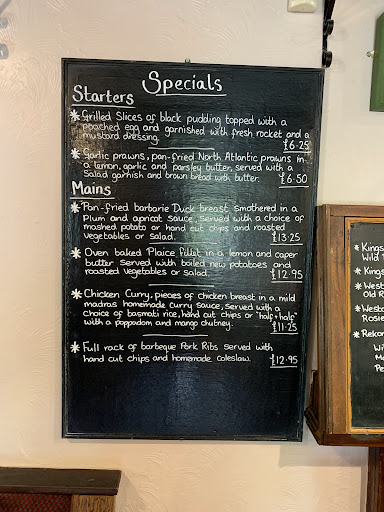 Specials
Starters
* Grilled Slices of black pudding topped with a
poached egg and garnished with fresh rocket and a
mustard dressing.
£6.25
* Garlic prawns, pan-fried North Atlantic prawns in
a lemon, garlic and parsley butter, served with a
Salad garnish and brown bread with butter.
£6.50
Mains
* Pan-fried barbarie Duck breast smothered in a
Plum and apricot Sauce, served with a choice of
mashed potato or hand cut chips and roasted
vegetables or salad.
£13.25
* Oven baked Plaice fillet in a lemon and caper
butter served with boiled new potatoes and
roasted vegetables or salad.
£12.95
* Chicken Curry, pieces of chicken breast in a mild
madras homemade curry sauce, served with a
choice of basmati rice, hand cut chips or "half + half"
with a poppadom and mango chutney.
£11.25
* Full rack of barbeque Pork Ribs served with
hand cut chips and homemade coleslaw.
£12.95
* Kings
Wild
* Kings
* West
Old R
* Westo
Rosie
* Rekor
Wi
Me
Pe